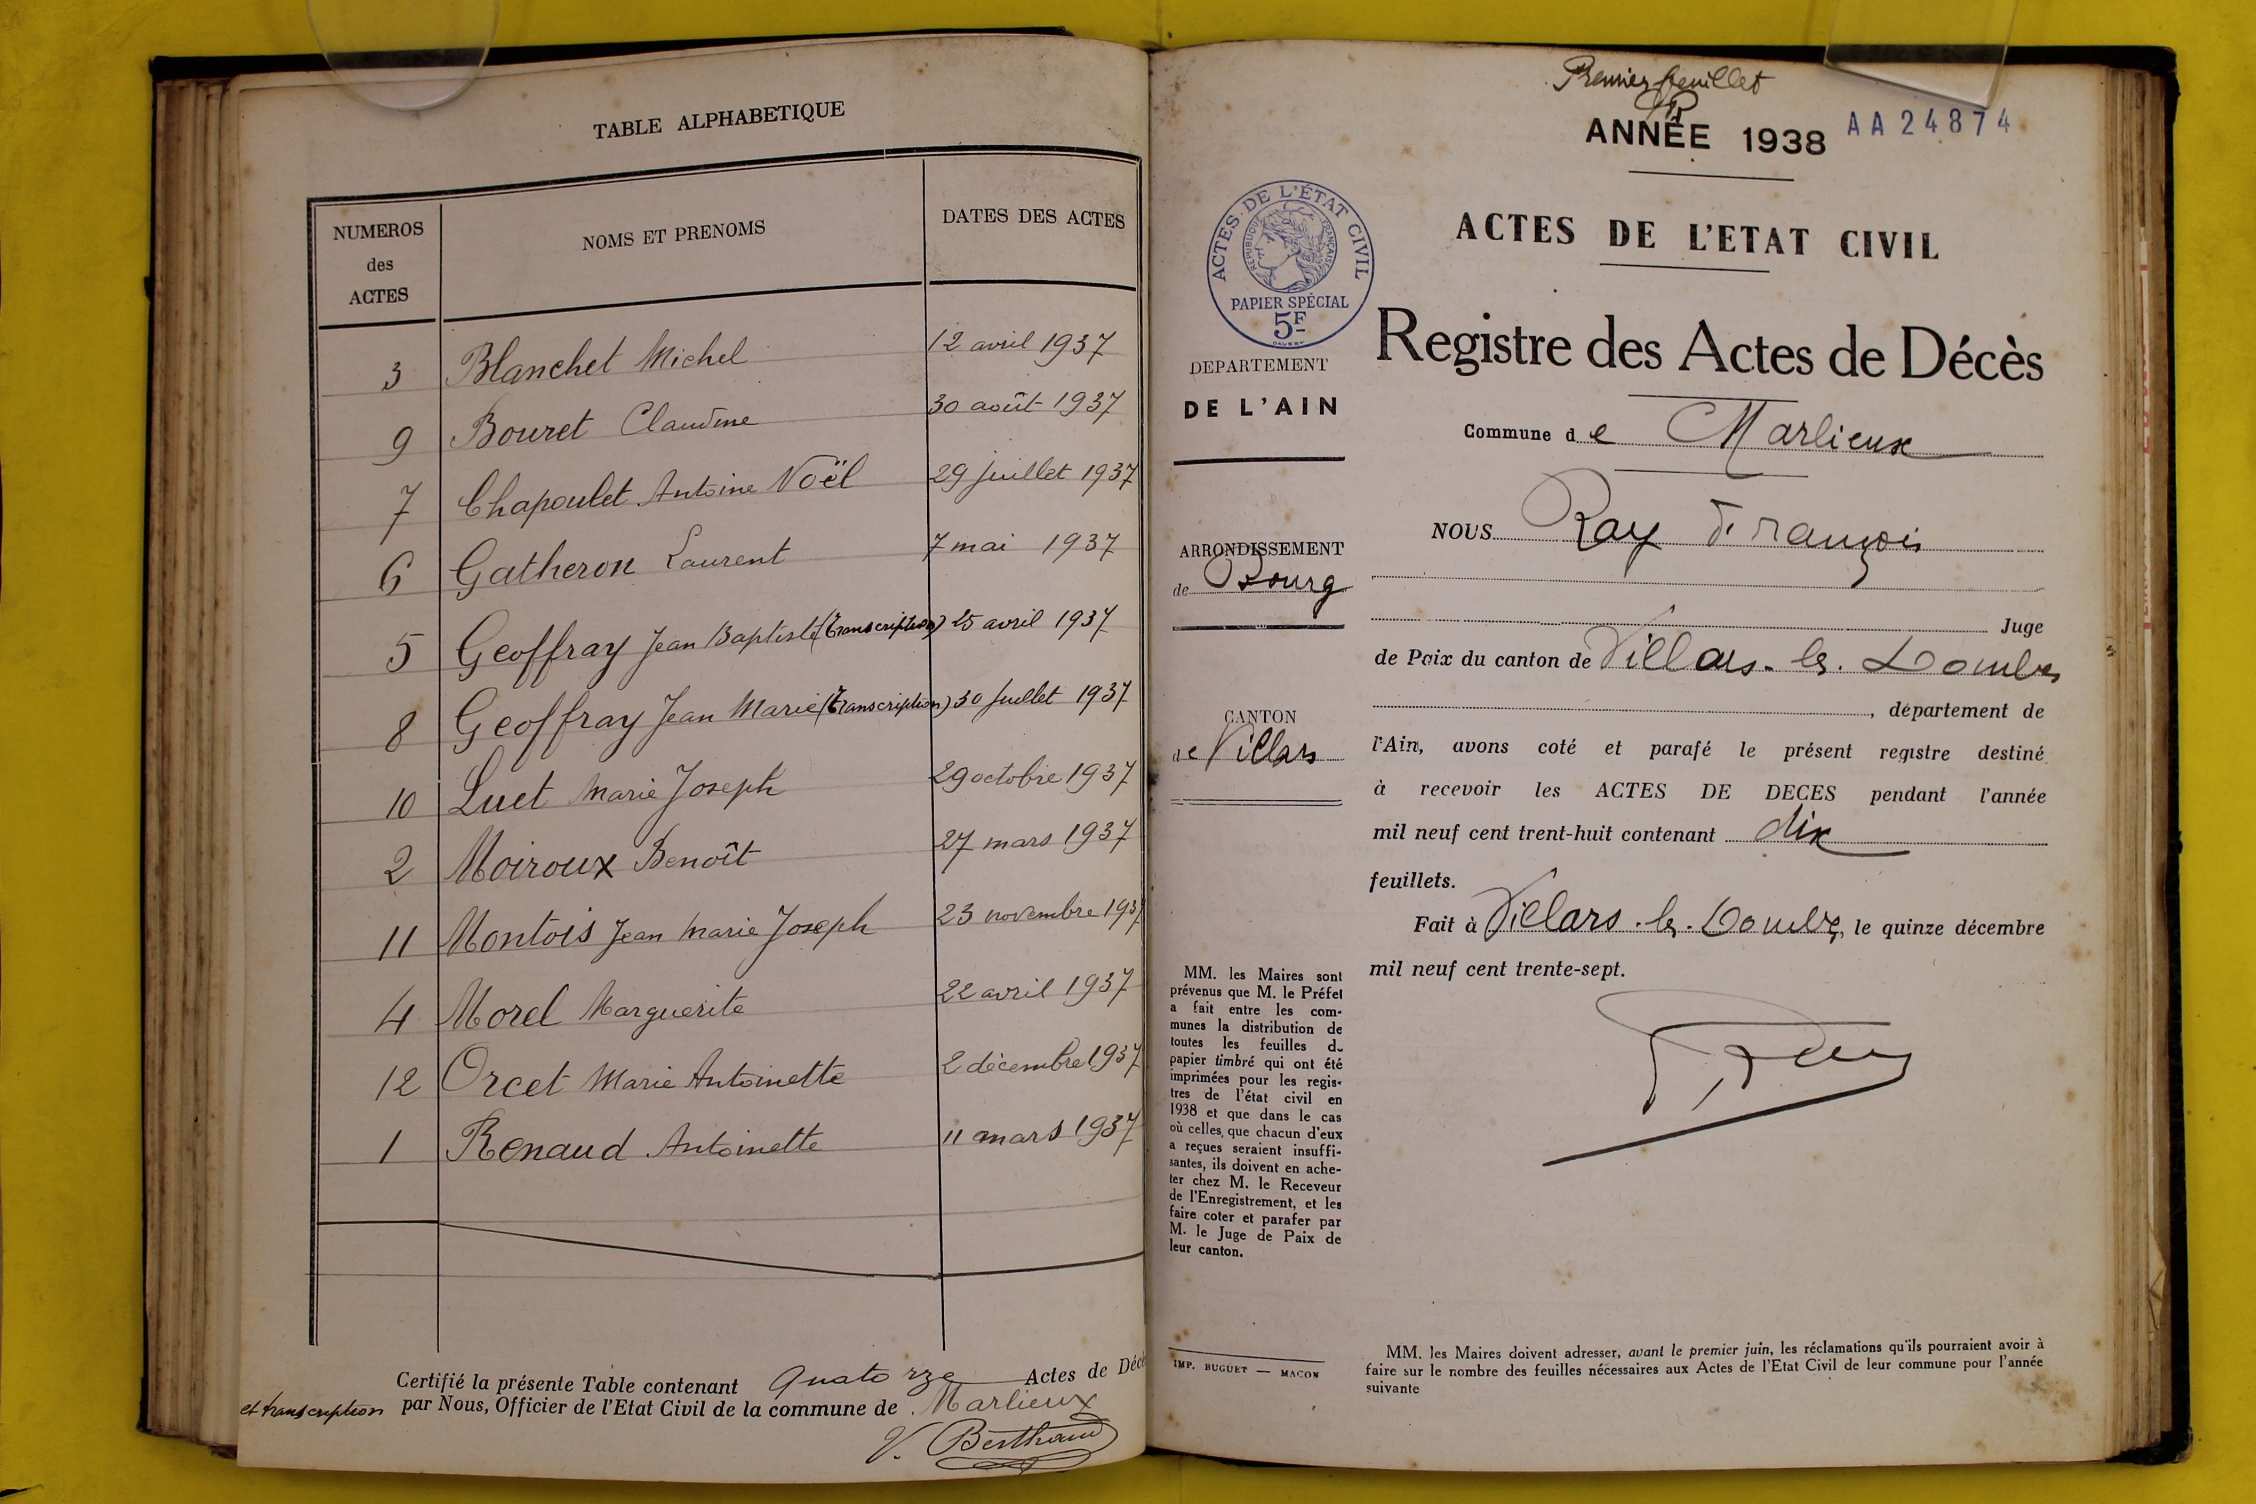 TABLE ALPHABETIQUE
NUMEROS des ACTES
NOMS ET PRENOMS
DATES DES ACTES
3 Blanchet Michel 12 avril 1937
9 Bouret Claudine 30 août 1937
7 Chapoulet Antoine Noël 29 juillet 1937
6 Gatheron Laurent 7 mai 1937
5 Geoffray Jean Baptiste (Transcription) 25 avril 1937
8 Geoffray Jean Marie (Transcription) 30 Juillet 1937
10 Luet Marie Joseph 29 octobre 1937
2 Moiroux Benoît 27 mars 1937
11 Montois Jean Marie Joseph 23 novembre 1937
4 Morel Marguerite 22 avril 1937
12 Orcet Marie Antoinette 2 décembre 1937
1 Renaud Antoinette 11 mars 1937
Certifié la présente Table contenant Quatorze Actes de Décè
et transcription par Nous, Officier de l'Etat Civil de la commune de Marlieux
V. Berthaud
Premier feuillet
ANNÉE 1938 AA24874
ACTES DE L'ÉTAT CIVIL
RÉPUBLIQUE FRANÇAISE
PAPIER SPÉCIAL
5F
ACTES DE L'ETAT CIVIL
Registre des Actes de Décès
DEPARTEMENT
DE L'AIN
ARRONDISSEMENT
de Bourg
CANTON
de Villars
MM. les Maires sont
prévenus que M. le Préfet
a fait entre les com-
munes la distribution de
toutes les feuilles du
papier timbré qui ont été
imprimées pour les regis-
tres de l'état civil en
1938 et que dans le cas
où celles, que chacun d'eux
a reçues seraient insuffi-
santes, ils doivent en ache-
ter chez M. le Receveur
de l'Enregistrement, et les
faire coter et parafer par
M. le Juge de Paix de
leur canton.
IMP. BUGUET — MACON
Commune de Marlieux
NOUS Ray François
Juge
de Paix du canton de Villars-les-Dombes
, département de
l'Ain, avons coté et parafé le présent registre destiné
à recevoir les ACTES DE DECES pendant l'année
mil neuf cent trent-huit contenant dix
feuillets.
Fait à Villars-les-Dombes, le quinze décembre
mil neuf cent trente-sept.
MM. les Maires doivent adresser, avant le premier juin, les réclamations qu'ils pourraient avoir à
faire sur le nombre des feuilles nécessaires aux Actes de l'Etat Civil de leur commune pour l'année
suivante